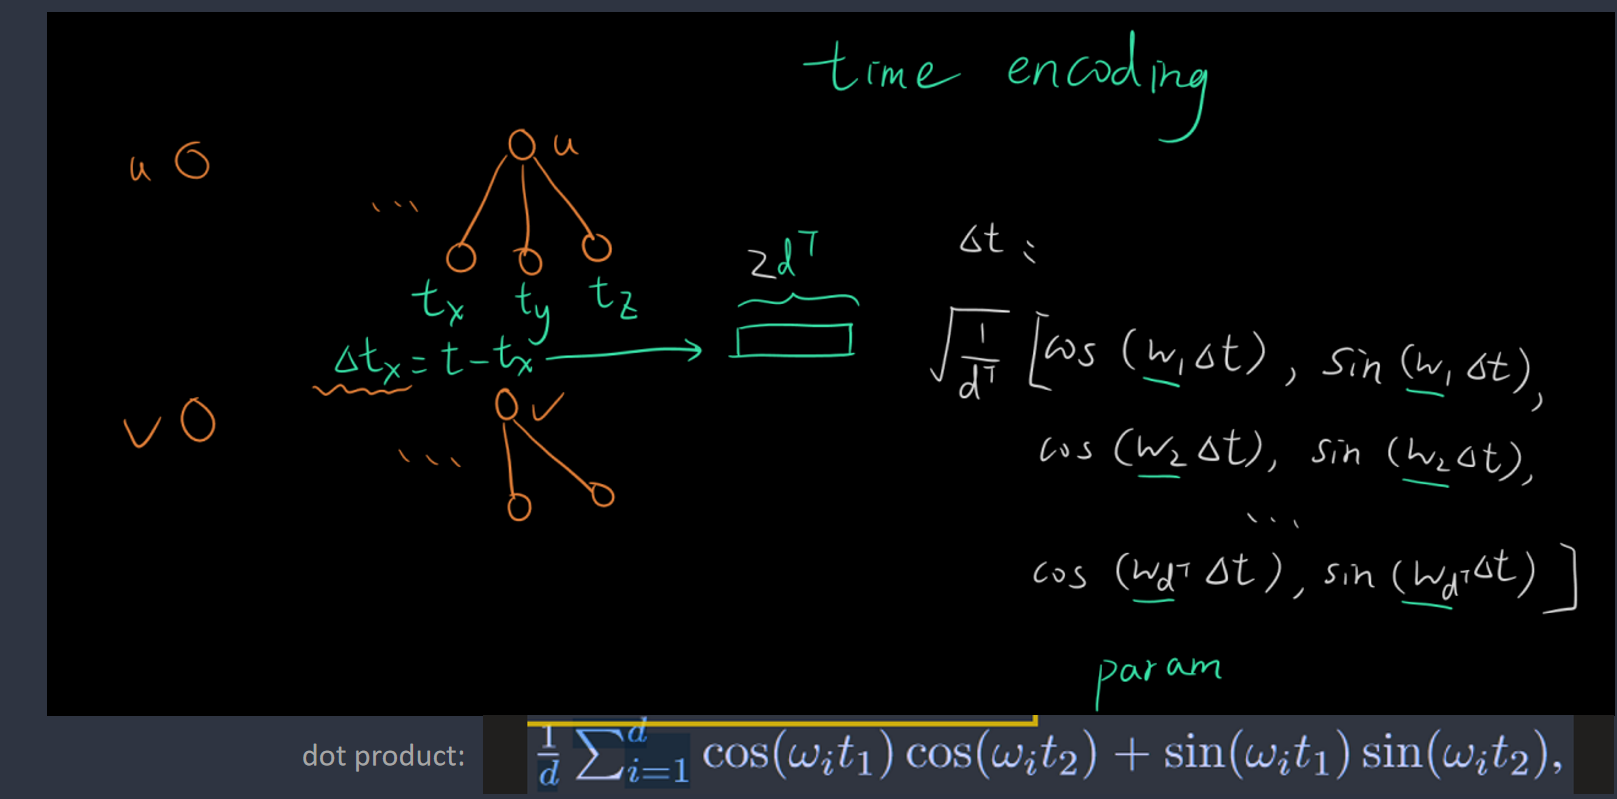 time encoding
u
u
...
2d^T
Δt:
t_x t_y t_z
Δt_x = t - t_x
√(1/d^T) [cos (w_1 Δt), sin (w_1 Δt),
v
v
...
cos (w_2 Δt), sin (w_2 Δt),
...
cos (w_{d^T} Δt), sin (w_{d^T} Δt)]
param
dot product: 1/d ∑_{i=1}^{d} cos(ω_i t_1) cos(ω_i t_2) + sin(ω_i t_1) sin(ω_i t_2),